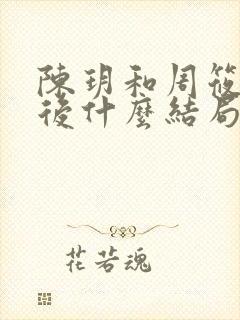 陳玥和周筱
後什麼結局
花若魂